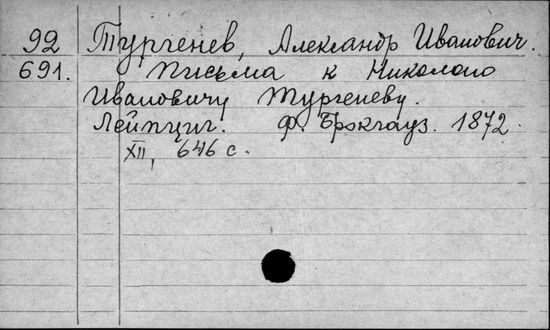 92 Тургенев, Александр Иванович.
691. Письма к Николаю
Ивановичу Тургеневу.
Лейпциг. Ф. Брокгауз. 1872.
XII, 646 с.